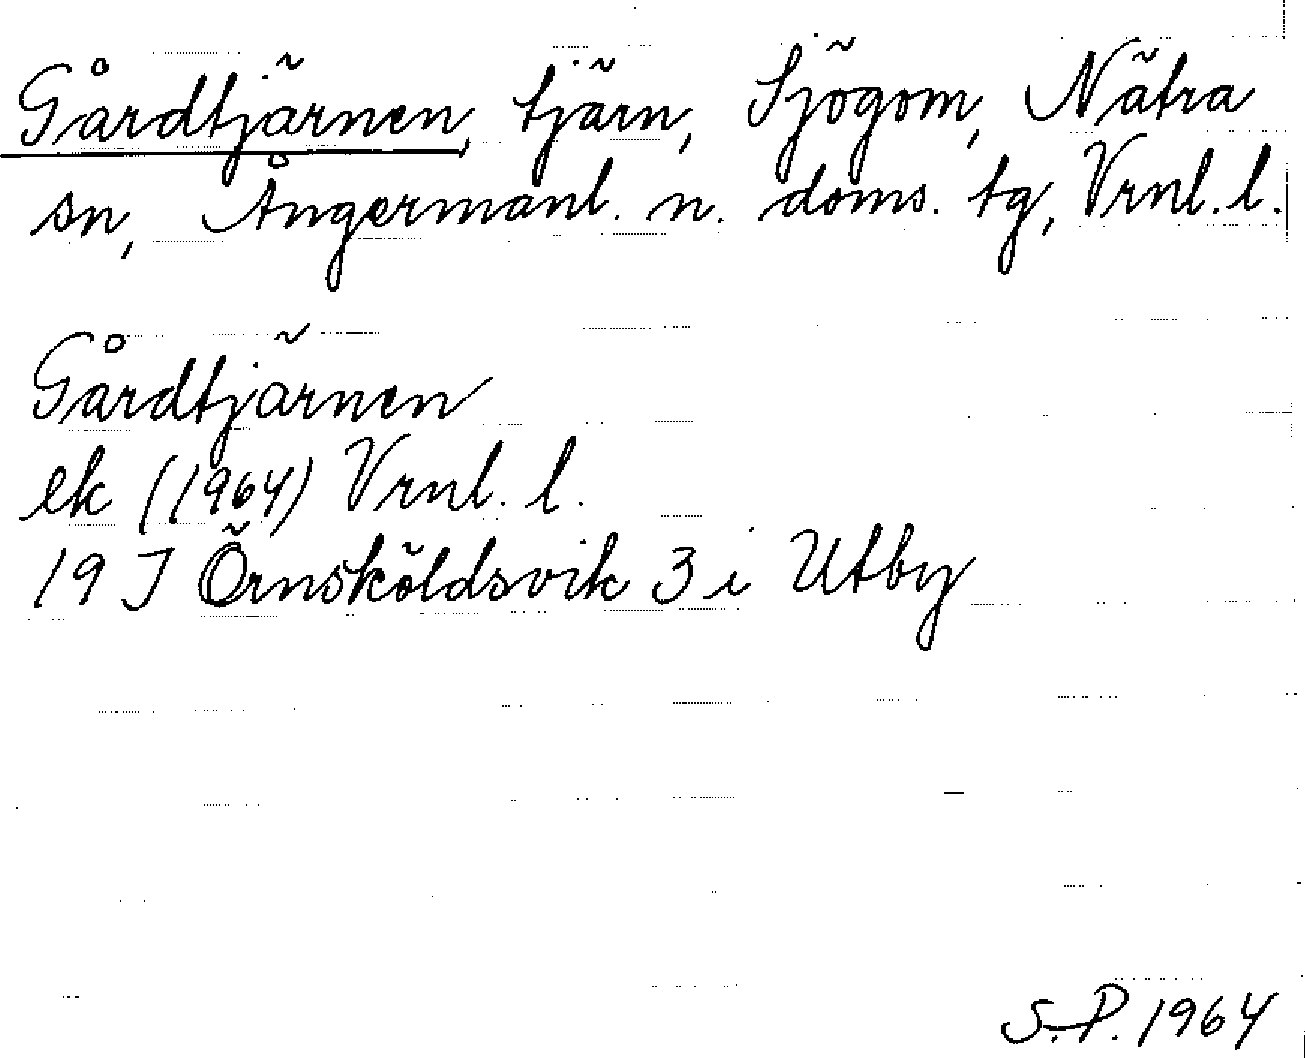 Gårdtjärnen, tjärn, Sjögom, Nätra
sn, Ångermanl. n. doms. tg, Vrnl. l.
Gårdtjärnen
ek (1964) Vrnl. l.
19 J Örnsköldsvik 3 i Utby
S.P. 1964